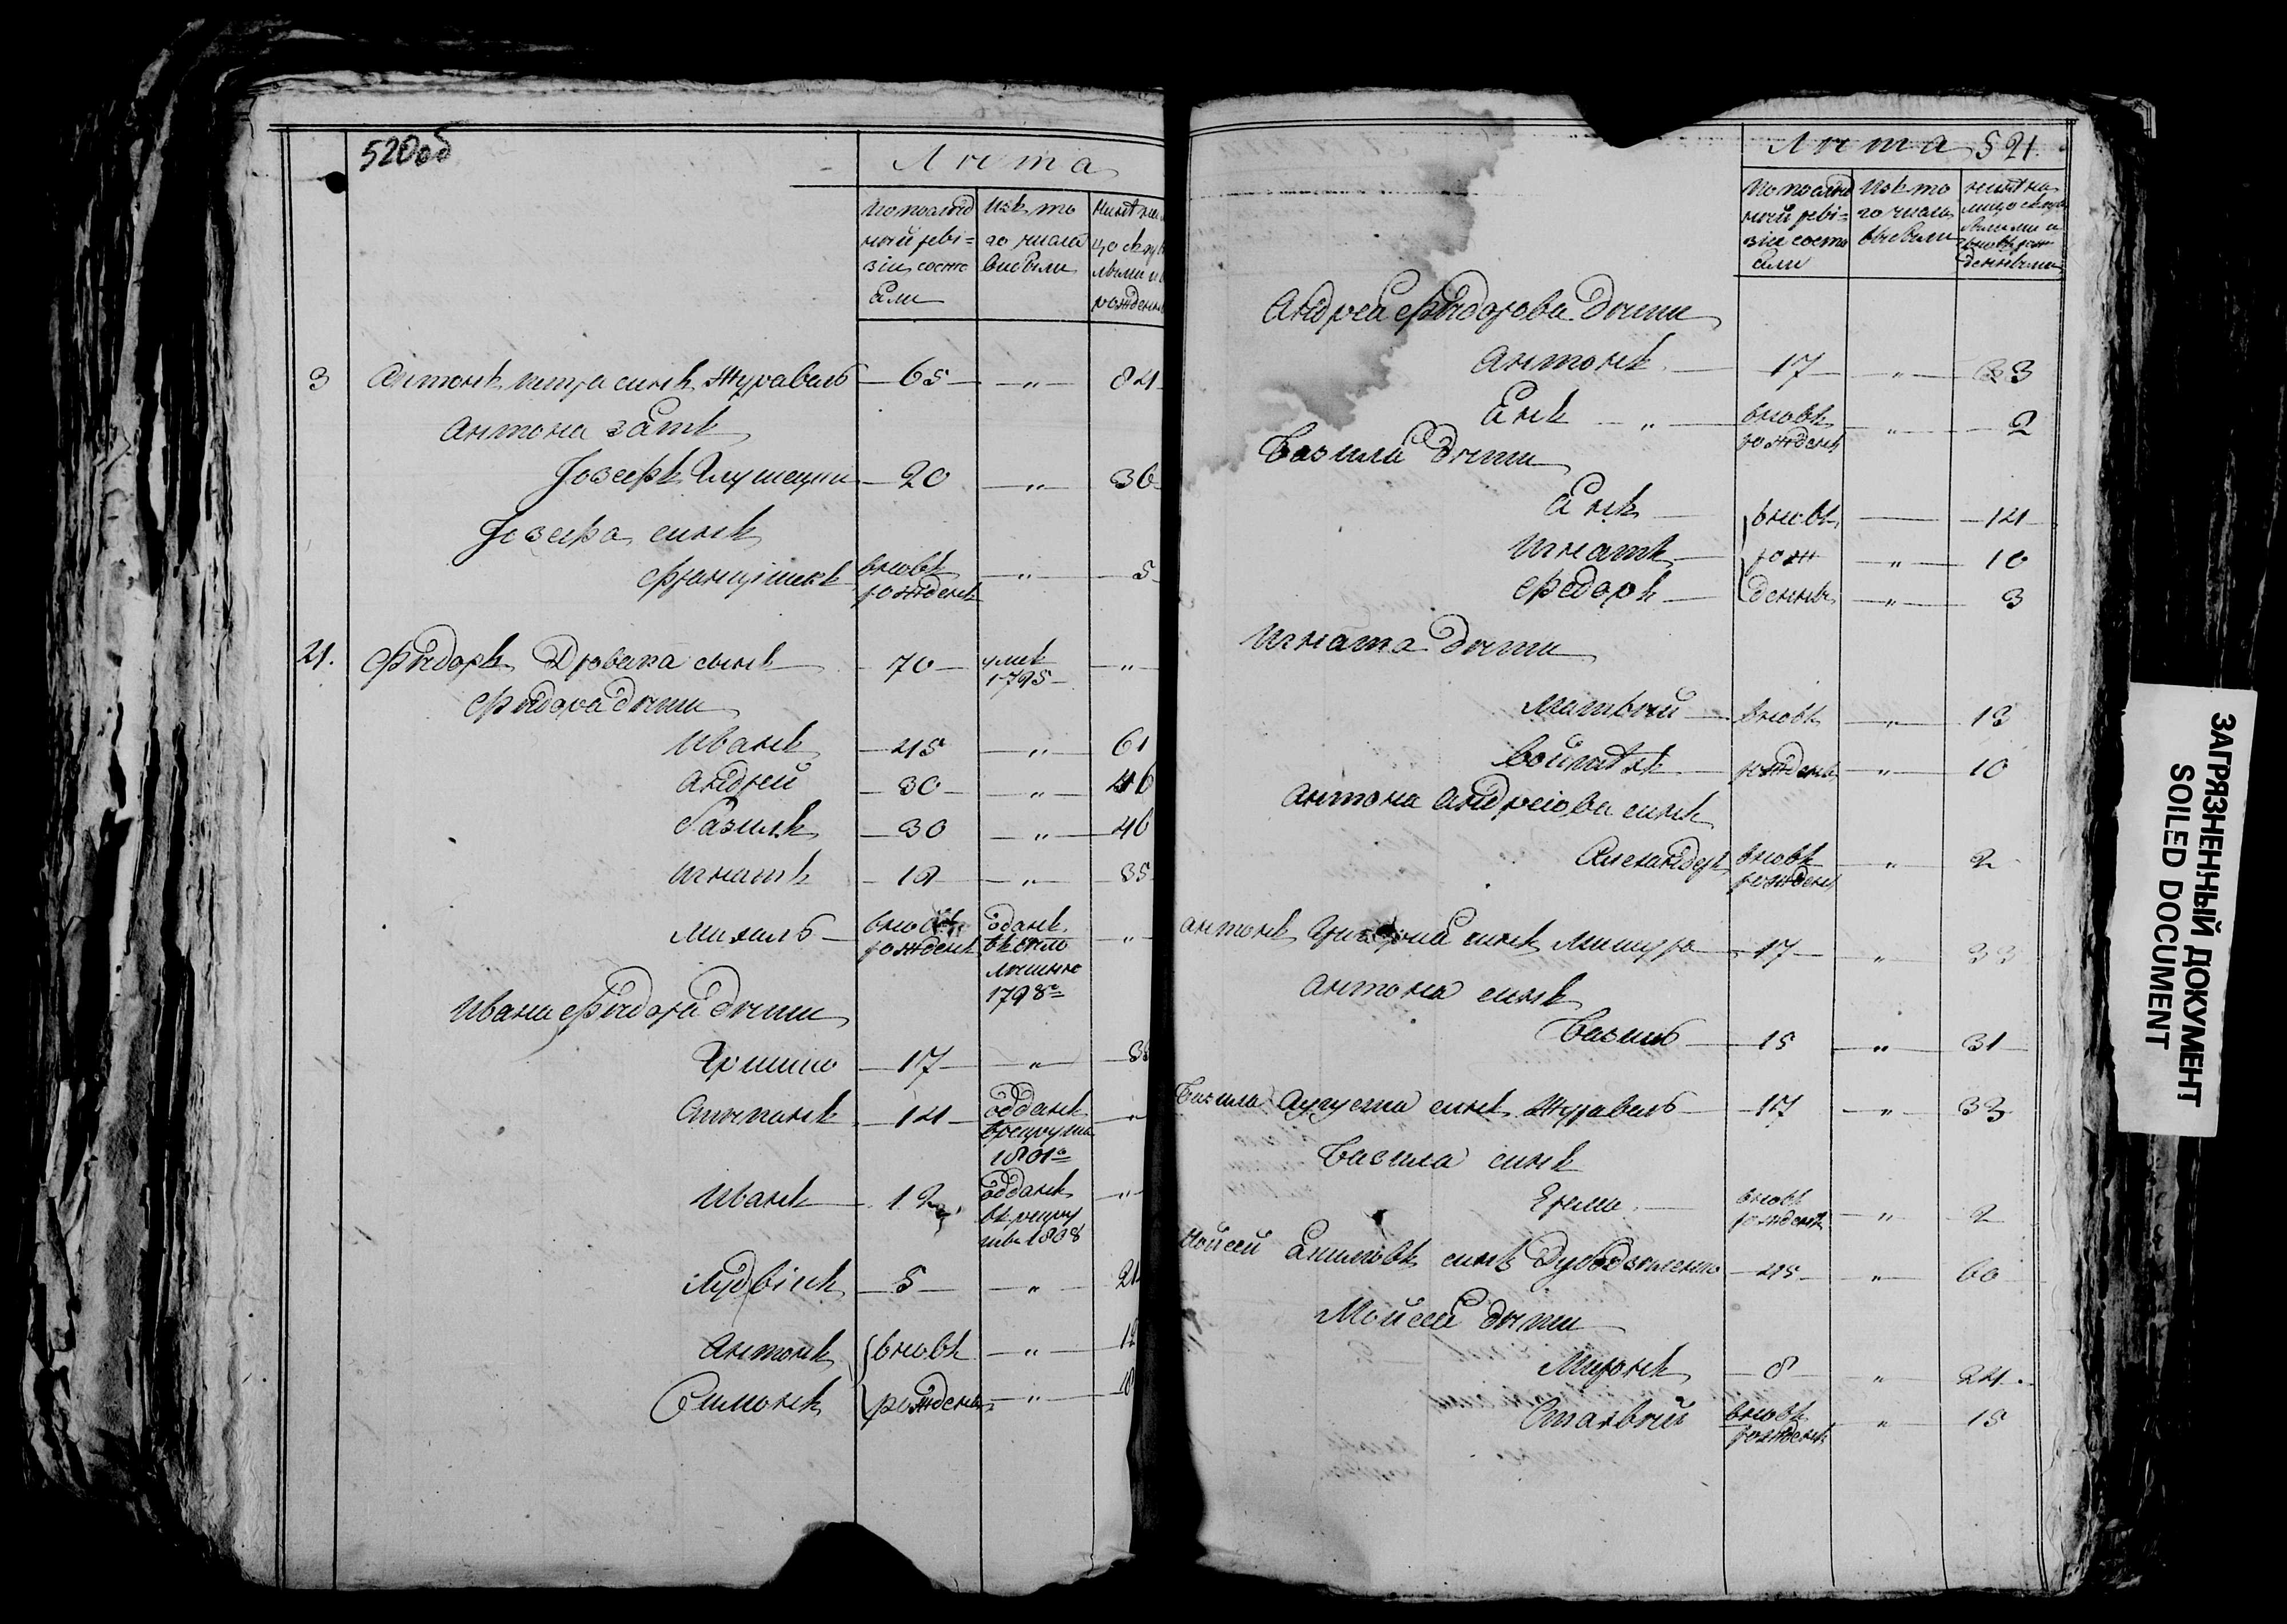 520об
Лѣта
По послѣд
ней реві-
зіи состо
яли
Изъ то
го числа
выбыли
3 Антонъ Петра сынъ Журавель — 65 — „ — 84
Антона зять
Іозефъ — 20 — „ — 36
Іозефа сынъ
Францішекъ вновь рожденъ — „ — 5
4. Фёдоръ сынъ — 70 — умеръ 1795 — „
Фёдора дѣти
Иванъ — 45 — „ — 61
Андрей — 30 — „ — 46
Базиль — 30 — „ — 46
Игнатъ — 19 — „ — 35
Михаль — вновь рожденъ
1798
Ивана Фёдора дѣти
Гришко — 17 — „ — 33
Степанъ — 14 — отданъ
в рекруты
1801
Иванъ — 12 — отданъ
въ рекру
ты 1808
Лудвікъ — 5 — „ — 21
Антонъ вновь — „ — 12
Симонъ рождены — „
Лѣта 521.
По послѣд
ней реві-
зіи состо
яли
Изъ то
го числа
выбыли
Андрея Фёдорова дѣти
Антонъ — 17 — „ — 33
Янъ — „ — вновь рожденъ — „ — 2
Базиля дѣти
Янъ вновь — 14
Игнатъ рож — „ — 10
Федоръ денны — „ — 3
Игната дѣти
Матвѣй — вновь — „ — 13
Войтѣхъ — рождены — „ — 10
Антона Андреіова сынъ
Александеръ вновь рожденъ — „ — 2
Антонъ Григорія сынъ Мишуро — 17 — „ — 33
Антона сынъ
Базиль — 15 — „ — 31
Базиля Аугуста сынъ Журавель — 17 — „ — 33
Базиля сынъ
Ерема — вновь рожденъ — „ — 2
Мойсей сынъ — 45 — „ — 60
Мойсея дѣти
Миронъ — 8 — „ — 24.
вновь рожденъ — „ — 15
ЗАГРЯЗНЕННЫЙ ДОКУМЕНТ
SOILED DOCUMENT